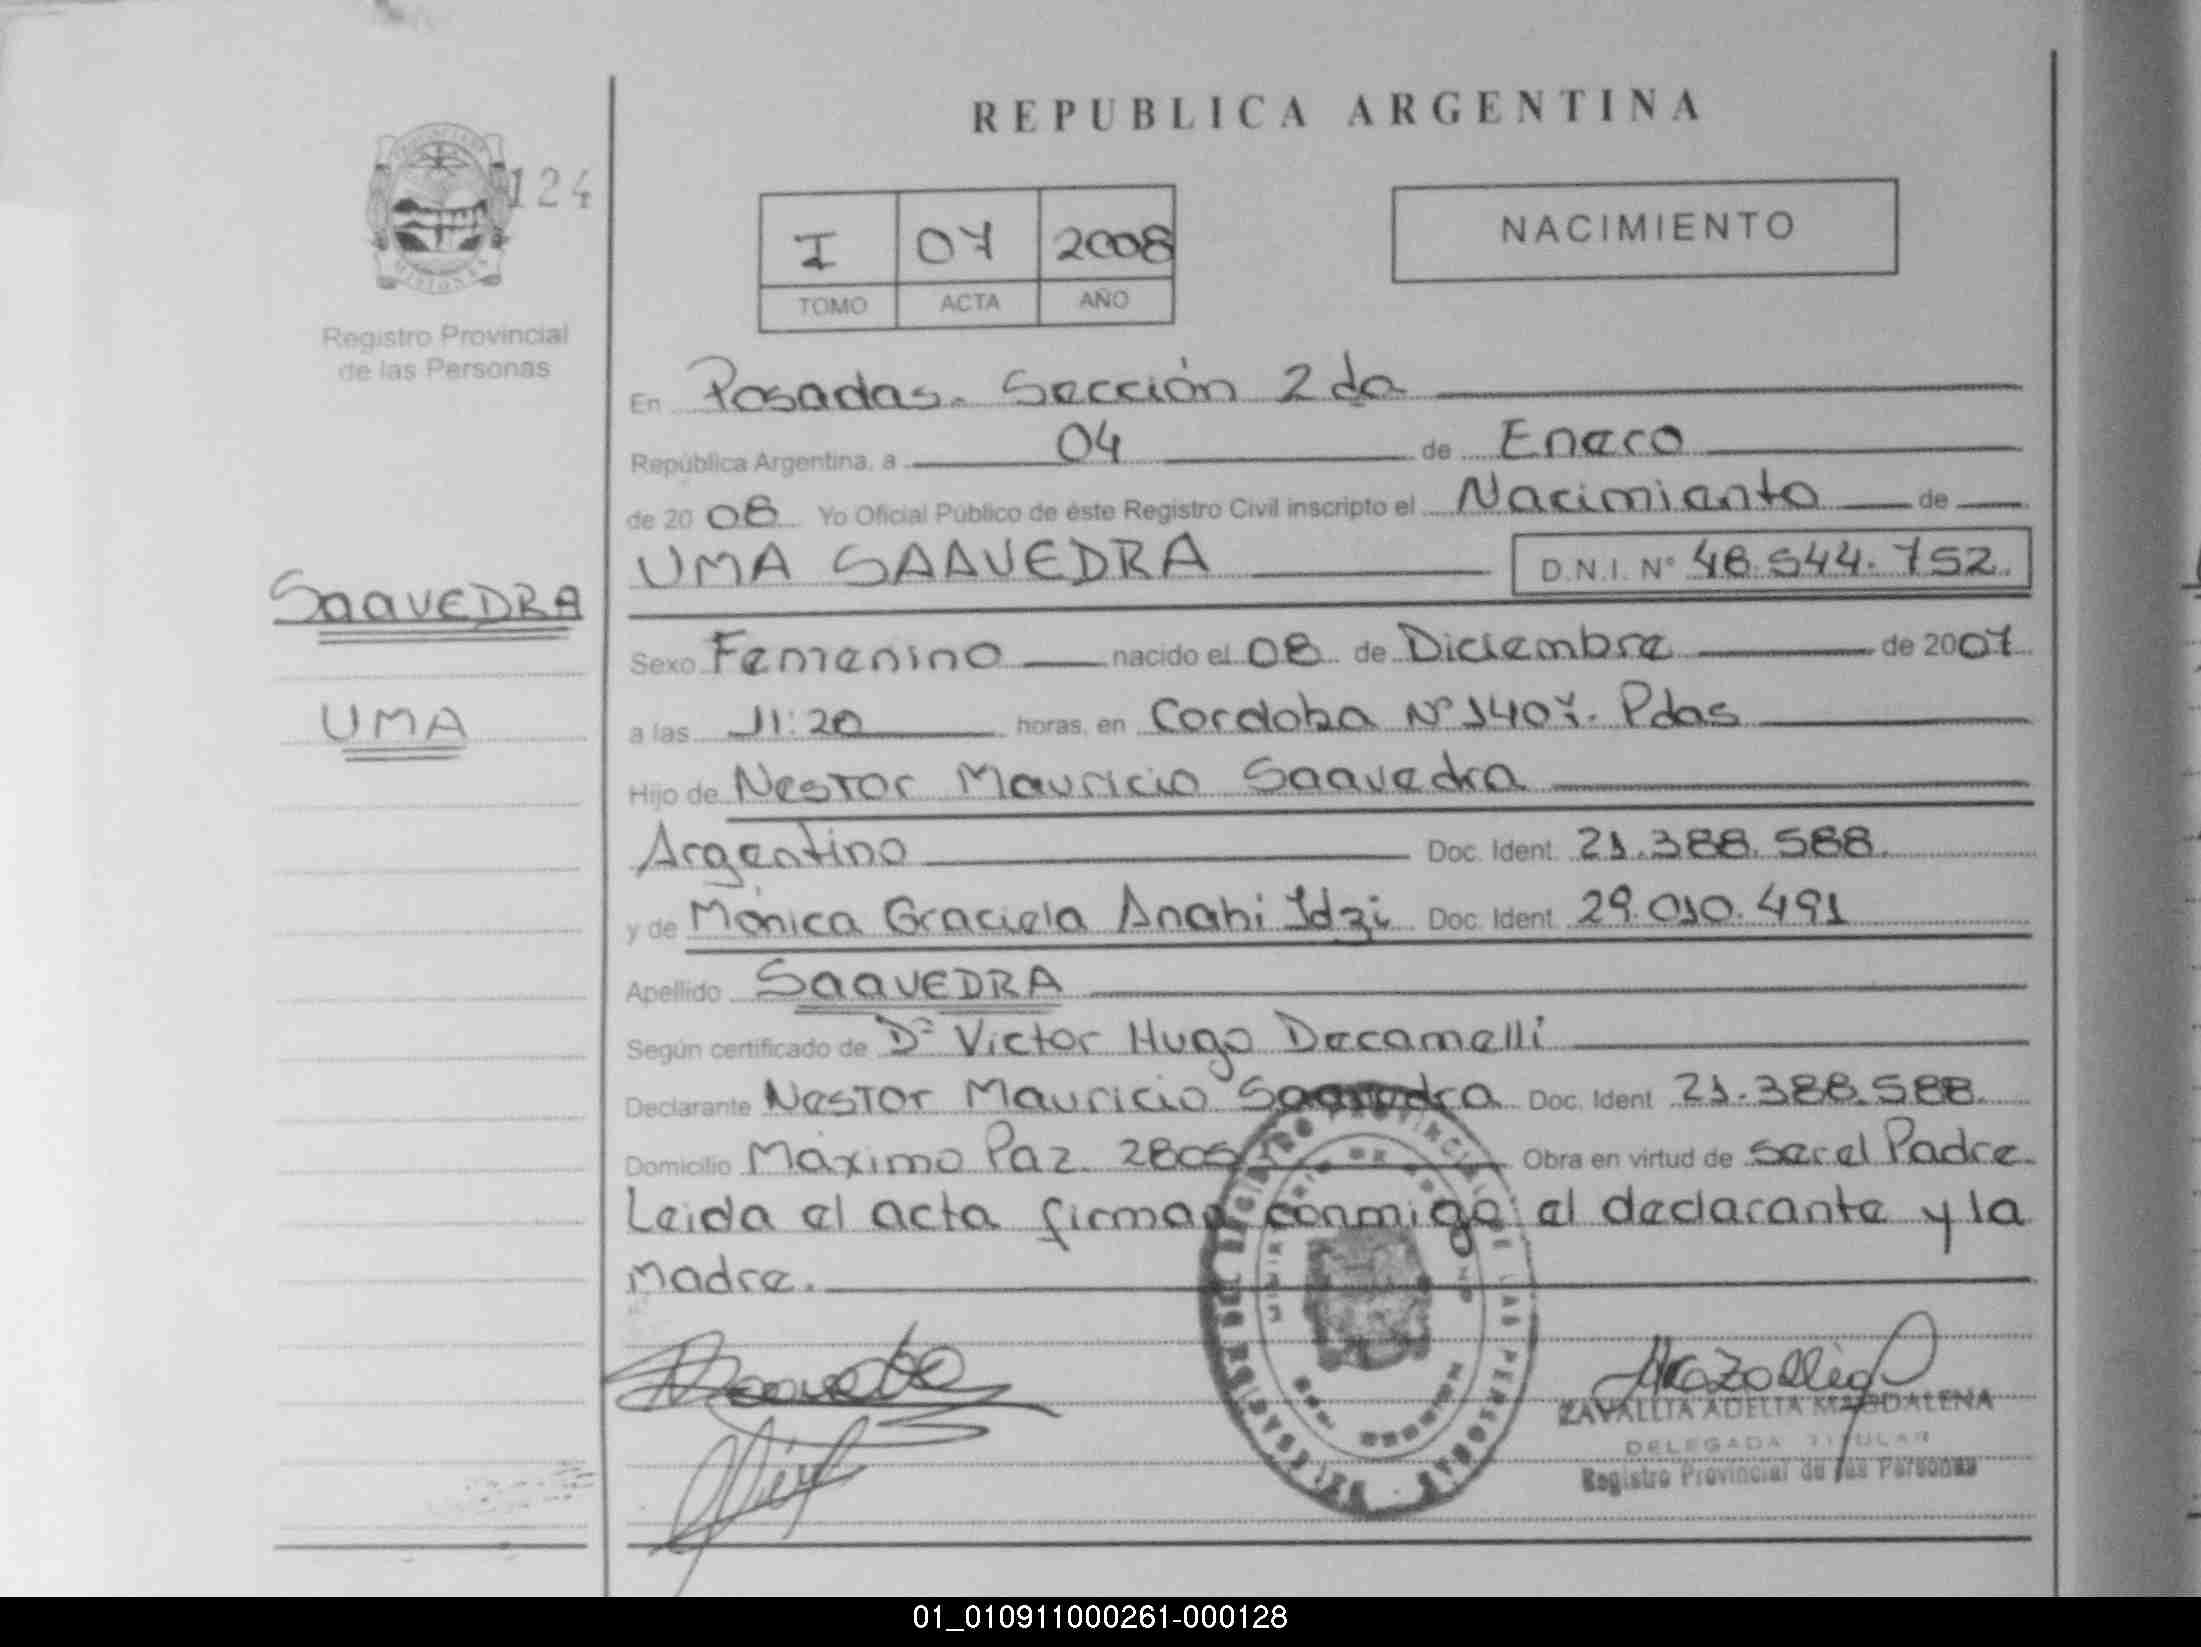 REPUBLICA ARGENTINA
124
I 07 2008
TOMO ACTA AÑO
NACIMIENTO
Registro Provincial
de las Personas
En Posadas. Sección 2da
República Argentina, a 04 de Enero
de 2008 Yo Oficial Público de éste Registro Civil inscripto el Nacimiento de
UMA SAAVEDRA D.N.I. Nº 48.544.752.
SaavEDRA
UMA
Sexo Femenino nacido el 08 de Diciembre de 2007
a las 11:20 horas, en Cordoba Nº 1407. Pdas
Hijo de Nestor Mauricio Saavedra
Argentino Doc. Ident. 21.388.588.
y de Mónica Graciela Anahi Idzi Doc. Ident. 29.010.491
Apellido SaavEDRA
Según certificado de Dr Victor Hugo Decamelli
Declarante Nestor Mauricio Saavedra Doc. Ident 21.388.588.
Domicilio Máximo Paz 2805 Obra en virtud de ser el Padre.
Leida el acta firman conmigo el declarante y la
Madre.
REGISTRO PROVINCIAL DE LAS PERSONAS
ZAVALLIA ADELIA MAGDALENA
DELEGADA TITULAR
Registro Provincial de las Personas
01_010911000261-000128